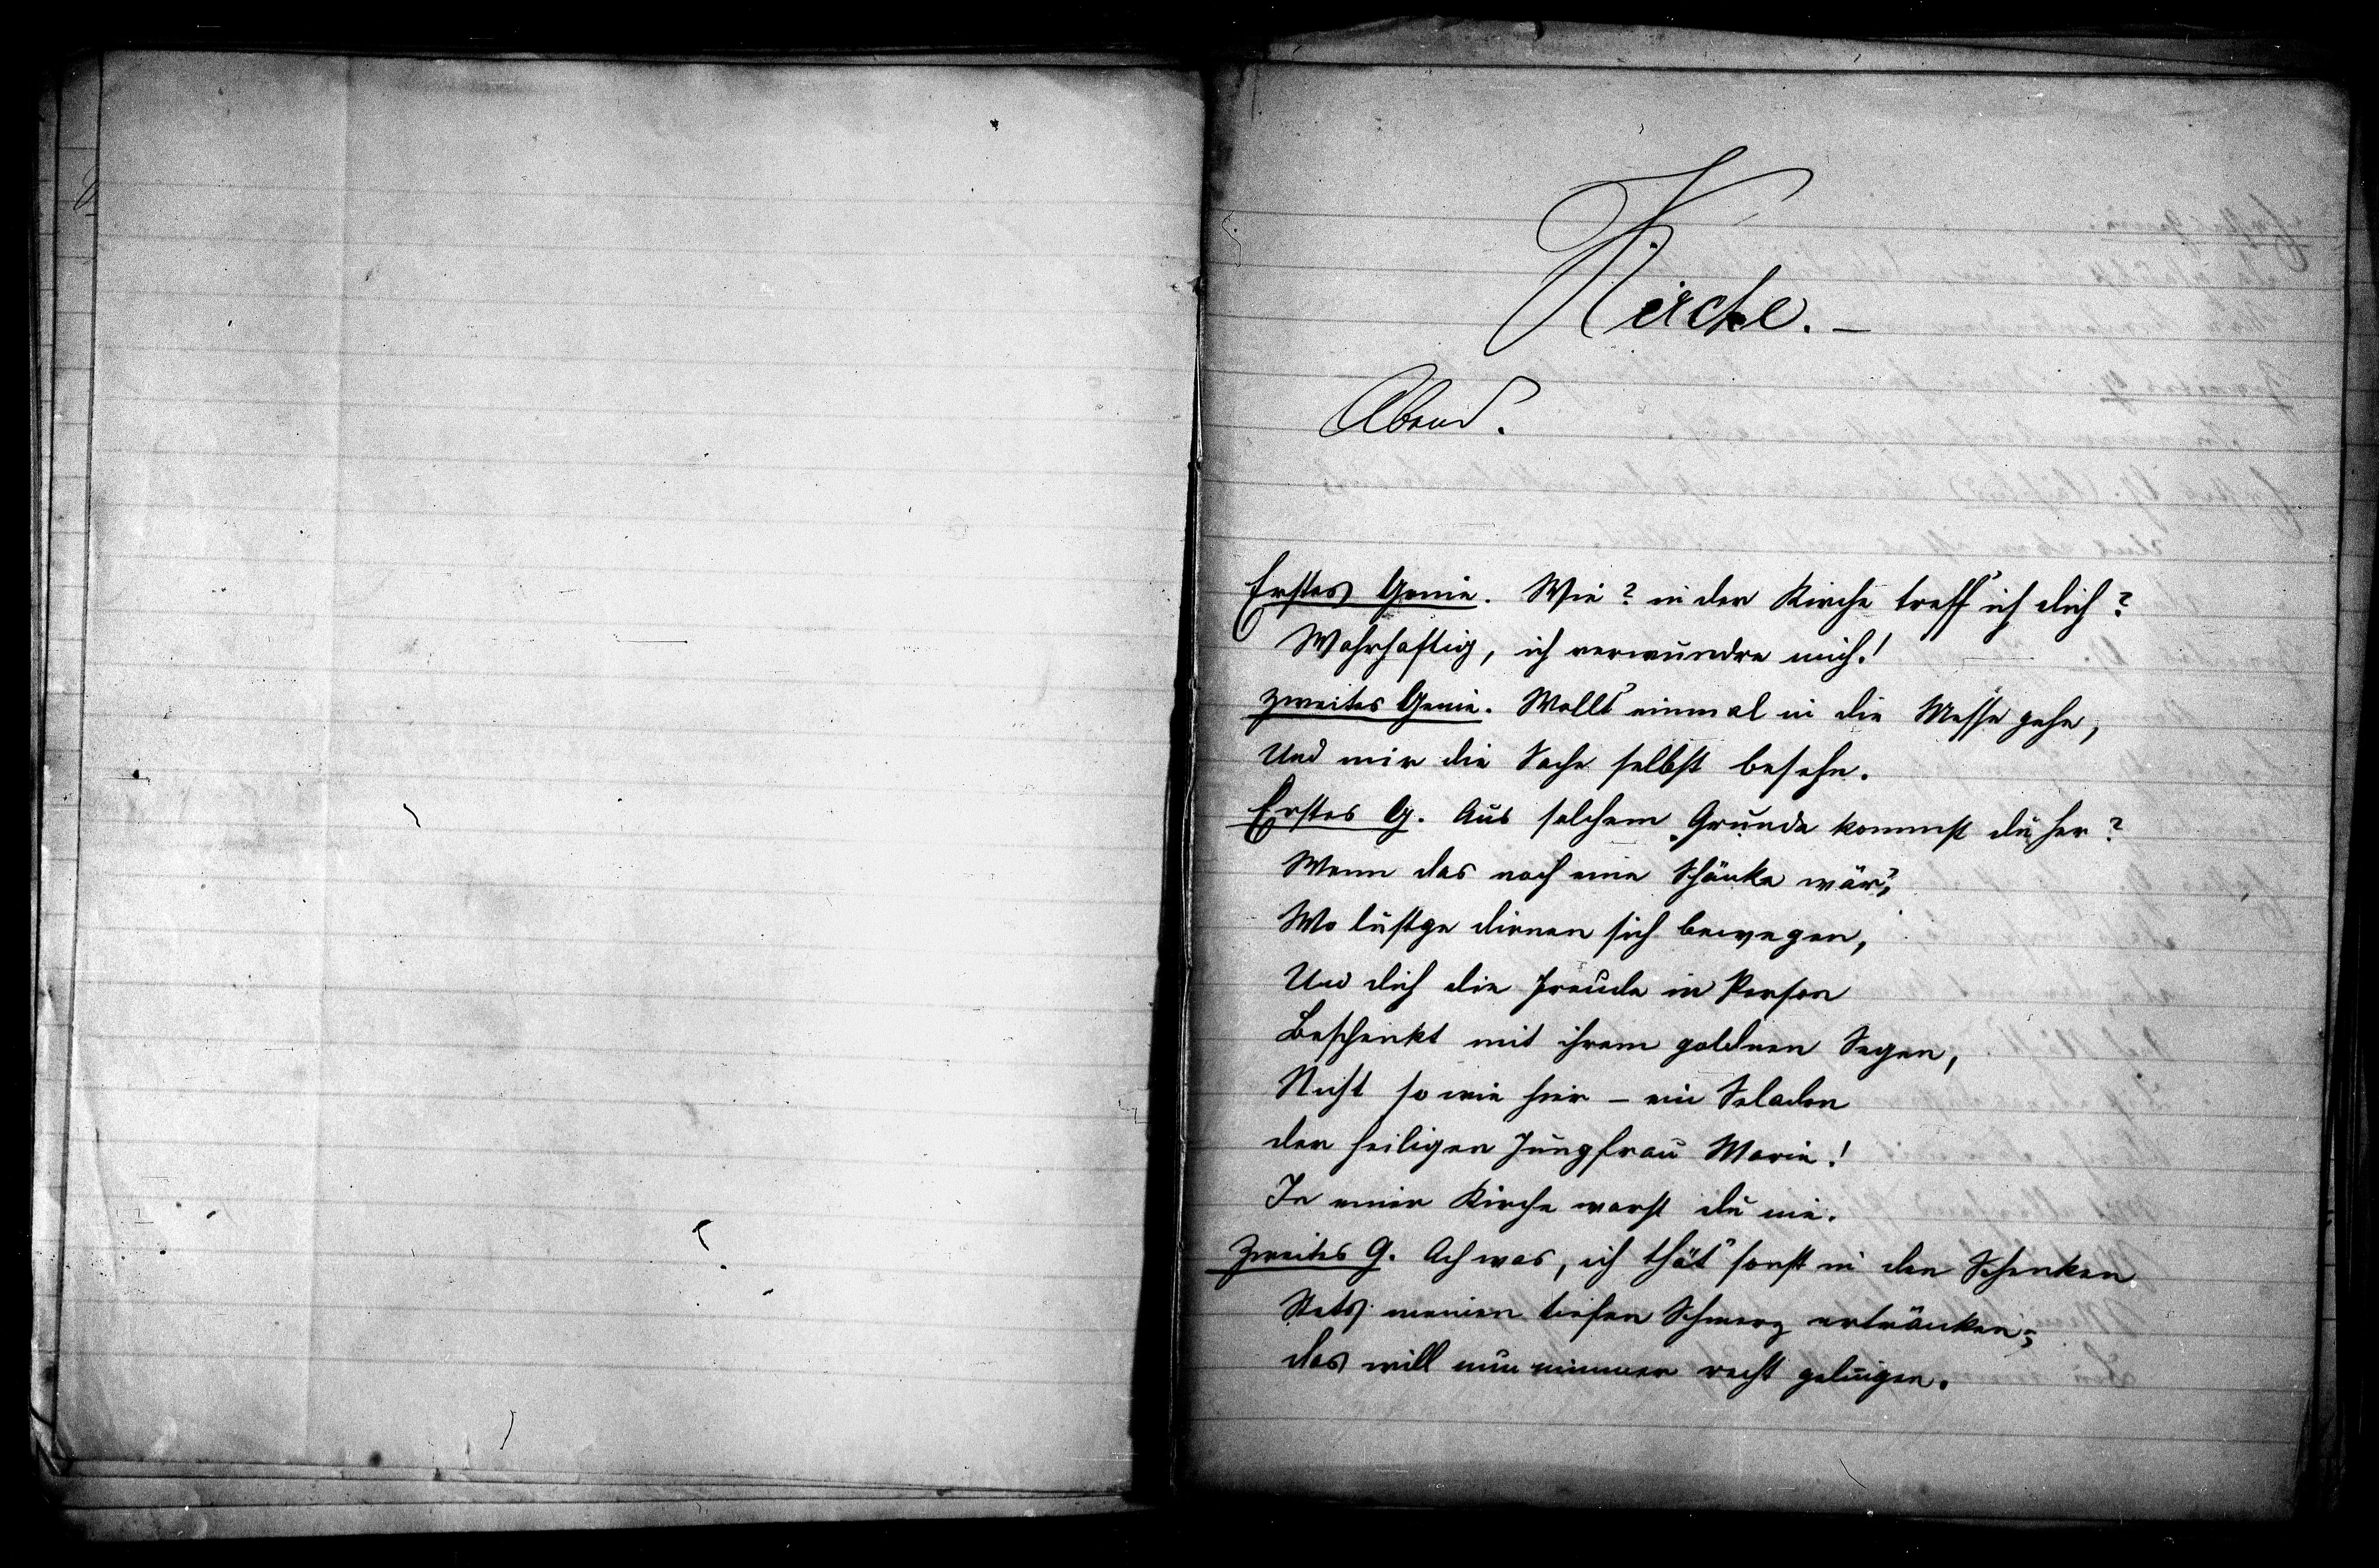 Kirche. –
Abend.
Erstes Genie. Wie? in der Kirche treff' ich dich?
Wahrhaftig, ich verwundre mich!
Zweites Genie. Wollt' einmal in die Messe gehn,
Und mir die Sache selbst besehn.
Erstes G. Aus solchem Grunde kommst du her?
Wenn das noch eine Schänke wär',
Wo lustge dirnen sich bewegen,
Und dich die Freude in Person
Beschenkt mit ihrem goldnen Segen,
Nicht so wie hier – ein Seladon
der heiligen Jungfrau Marie!
In einer Kirche warst du nie.
Zweites G. Ach was, ich thät' sonst in den Schenken
Stets meinen tiefen Schmerz ertränken;
das will nun nimmer recht gelingen.